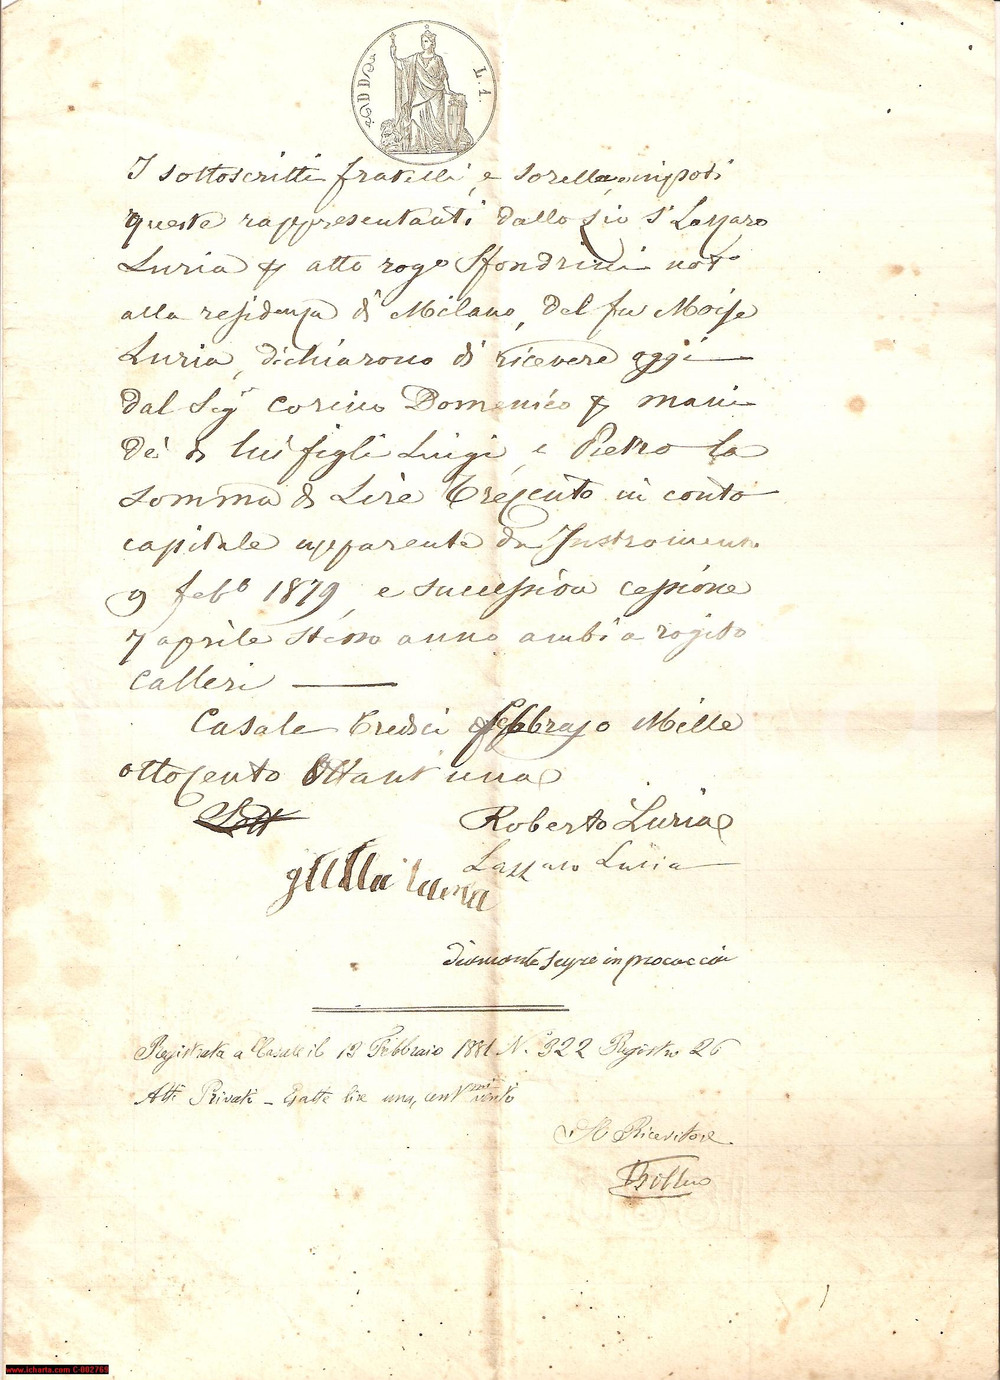 L. 1.
I sottoscritti fratelli, e sorella, nipoti
queste rappresentanti dallo zio Sr Lazzaro
Luria p atto rogo Sfondrini noto
alla residenza di Milano, del fu Moise
Luria, dichiarono di ricevere oggi
dal Sigr Corino Domenico p mani
dei di lui figli Luigi, e Pietro la
somma di Lire Trecento in conto
capitale apparente da Instromento
9 febo 1879, e successiva cessione
7 aprile stesso anno ambi a rogito
Calleri
Casale tredici febbrajo Mille
ottocento Ottant'una
Roberto Luria
Lazzaro Luria
Luria
diamante Segre in procaccia
Registrata a Casale il 13 Febbraio 1881 N. 322 Registro 26
Atti Privati - Esatte lire una, cent mi venti
Il Ricevitore
www.icharta.com C-002769